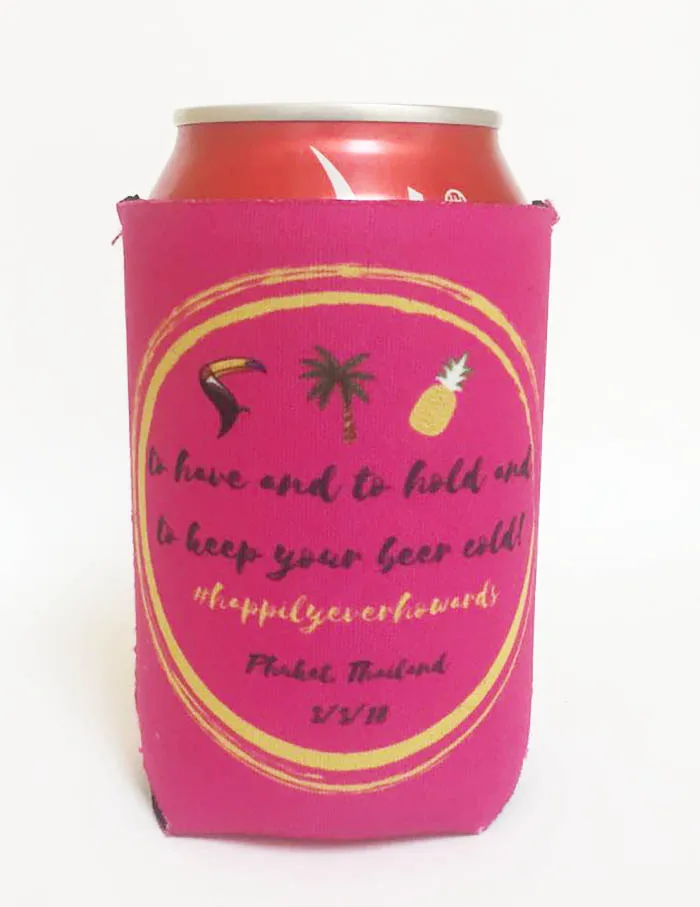 to have and to hold and
to keep your beer cold!
#happilyeverhowards
Phuket, Thailand